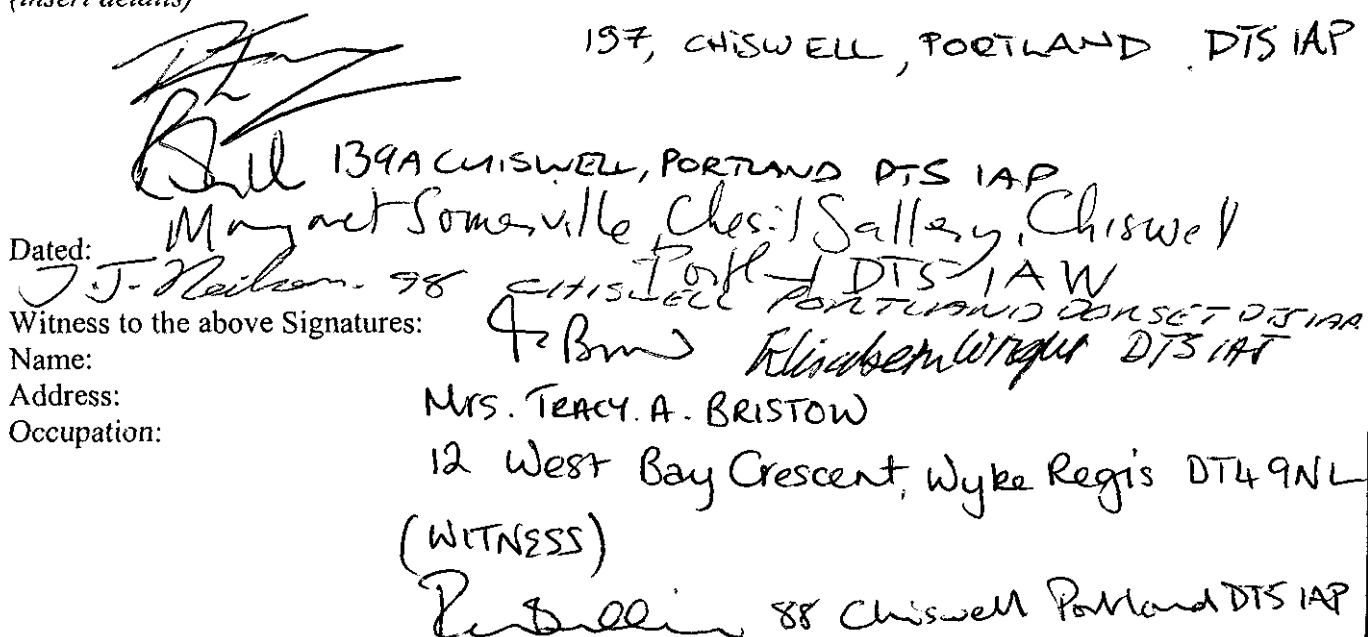 (insert details)
157, CHISWELL, PORTLAND. DT5 1AP
139A CHISWELL, PORTLAND DT5 1AP
Margaret Somerville, Chesil Gallery, Chiswell
Dated: Portland DT5 1AW
J. J. Neilson. 98 CHISWELL PORTLAND DORSET DT5 1AA
Witness to the above Signatures:
Name: Elisabeth Wright DT5 1AT
Address: Mrs. TRACY. A. BRISTOW
Occupation:
12 West Bay Crescent, Wyke Regis DT4 9NL
(WITNESS)
88 Chiswell Portland DT5 1AP